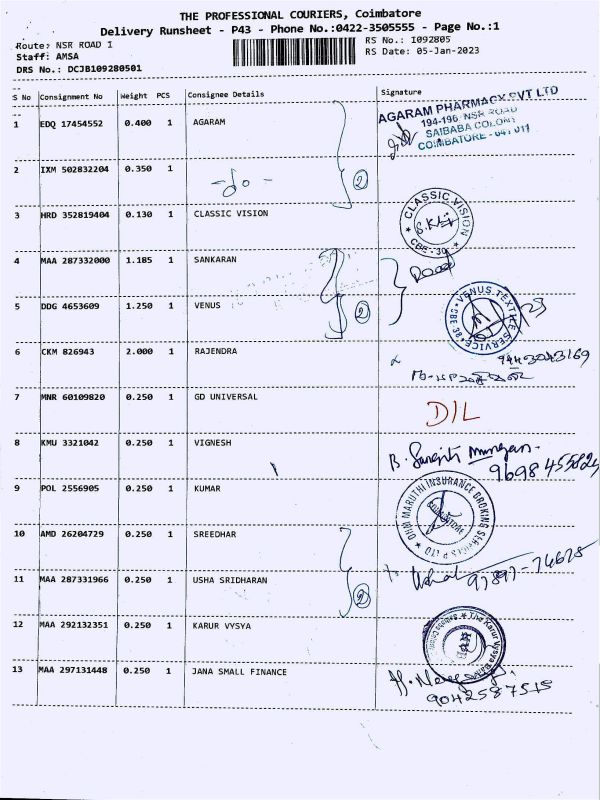 THE PROFESSIONAL COURIERS, Coimbatore
Delivery Runsheet - P43 - Phone No.:0422-3505555 - Page No.:1
Route: NSR ROAD 1
RS No.: 1092805
Staff: AMSA
RS Date: 05-Jan-2023
DRS No.: DCJB109280501
S No Consignment No Weight PCS Consignee Details Signature
1 EDQ 17454552 0.400 1 AGARAM
AGARAM PHARMACY PVT LTD
194-196, NSR ROAD
SAIBABA COLONY
COIMBATORE - 641 011
2 IXM 502832204 0.350 1
-do-
2
3 HRD 352819404 0.130 1 CLASSIC VISION
CLASSIC VISION
CBE-30
4 MAA 287332000 1.185 1 SANKARAN
5 DDG 4653609 1.250 1 VENUS
2
VENUS TEXTILE SERVICE CBE-38
6 CKM 826943 2.000 1 RAJENDRA
9443043169
7 MNR 60109820 0.250 1 GD UNIVERSAL
D/L
8 KMU 3321042 0.250 1 VIGNESH
9698455824
9 POL 2556905 0.250 1 KUMAR
OHM MARUTHI INSURANCE BROKING SERVICES P LTD
COIMBATORE
10 AMD 26204729 0.250 1 SREEDHAR
11 MAA 287331966 0.250 1 USHA SRIDHARAN
Usha 97897-74678
2
12 MAA 292132351 0.250 1 KARUR VYSYA
The Karur Vysya Bank
13 MAA 297131448 0.250 1 JANA SMALL FINANCE
9042587515